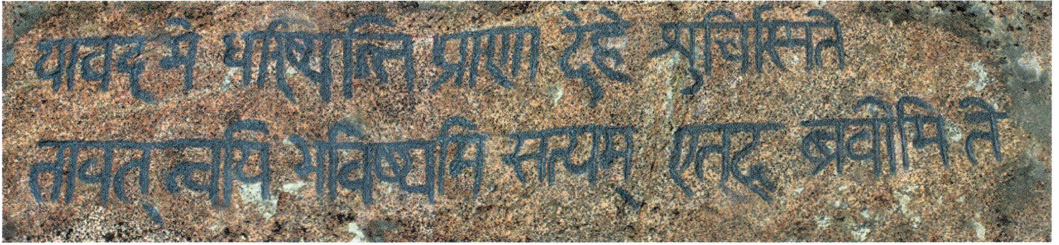 यावद् मे धरिष्यन्ति प्राणा देहे शुचिस्मिते
तावत् त्वयि भविष्यामि सत्यम् एतद् ब्रवीमि ते